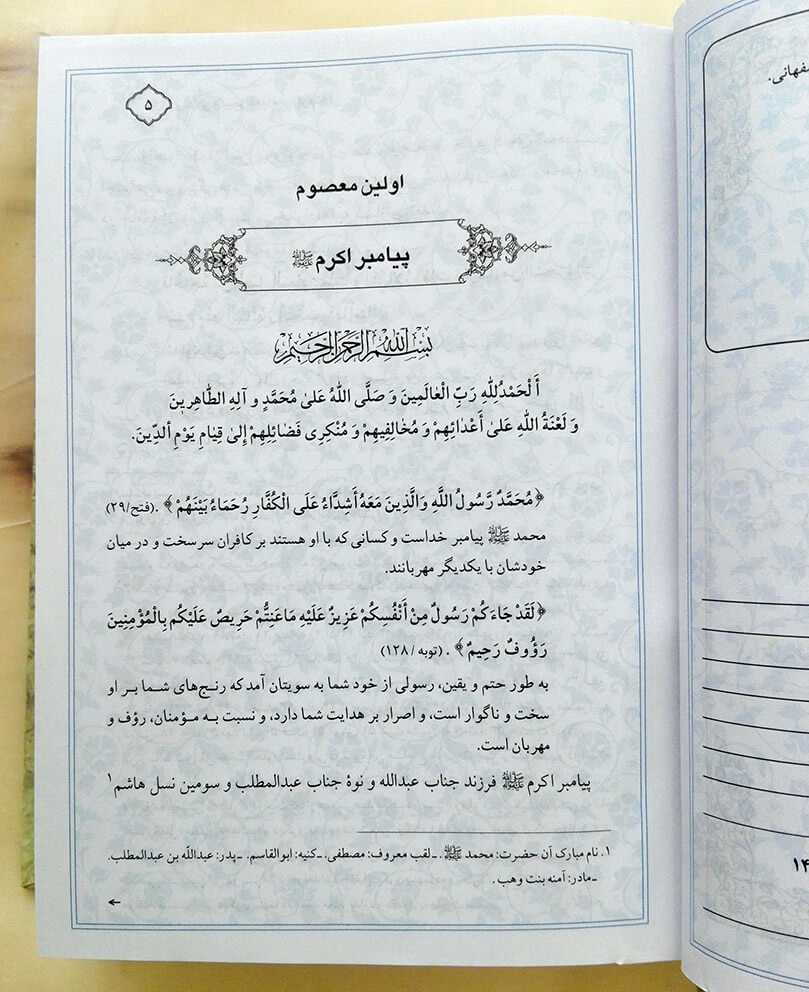 ۵
اولین معصوم
پیامبر اکرم ﷺ
بِسْمِ اللهِ الرَّحْمٰنِ الرَّحِیمِ
أَلْحَمْدُلِلّٰهِ رَبِّ الْعٰالَمِینَ وَ صَلَّی اللّٰهُ عَلیٰ مُحَمَّدٍ و آلِهِ الطّٰاهِرِینَ
وَ لَعْنَةُ اللّٰهِ عَلیٰ أَعْدٰائِهِمْ وَ مُخٰالِفِیهِمْ وَ مُنْکِرِی فَضٰائِلِهِمْ إِلیٰ قِیٰامِ یَوْمِ ألدِّینَ.
﴿مُحَمَّدٌ رَّسُولُ اللَّهِ وَالَّذِینَ مَعَهُ أَشِدَّاءُ عَلَی الْکُفَّارِ رُحَمَاءُ بَیْنَهُمْ﴾ .(فتح/۲۹)
محمد ﷺ پیامبر خداست و کسانی که با او هستند بر کافران سرسخت و در میان
خودشان با یکدیگر مهربانند.
﴿لَقَدْ جَاءَکُمْ رَسُولٌ مِنْ أَنْفُسِکُمْ عَزِیزٌ عَلَیْهِ مَا عَنِتُّمْ حَرِیصٌ عَلَیْکُم بِالْمُؤْمِنِینَ
رَؤُوفٌ رَحِیمٌ﴾ . (توبه / ۱۲۸)
به طور حتم و یقین، رسولی از خود شما به سویتان آمد که رنج‌های شما بر او
سخت و ناگوار است، و اصرار بر هدایت شما دارد، و نسبت به مؤمنان، رؤف و
مهربان است.
پیامبر اکرم ﷺ فرزند جناب عبدالله و نوهٔ جناب عبدالمطلب و سومین نسل هاشم۱
۱. نام مبارک آن حضرت: محمد ﷺ ـ لقب معروف: مصطفی. ـ کنیه: ابوالقاسم. ـ پدر: عبداللّه بن عبدالمطلب.
ـ مادر: آمنه بنت وهب .
←